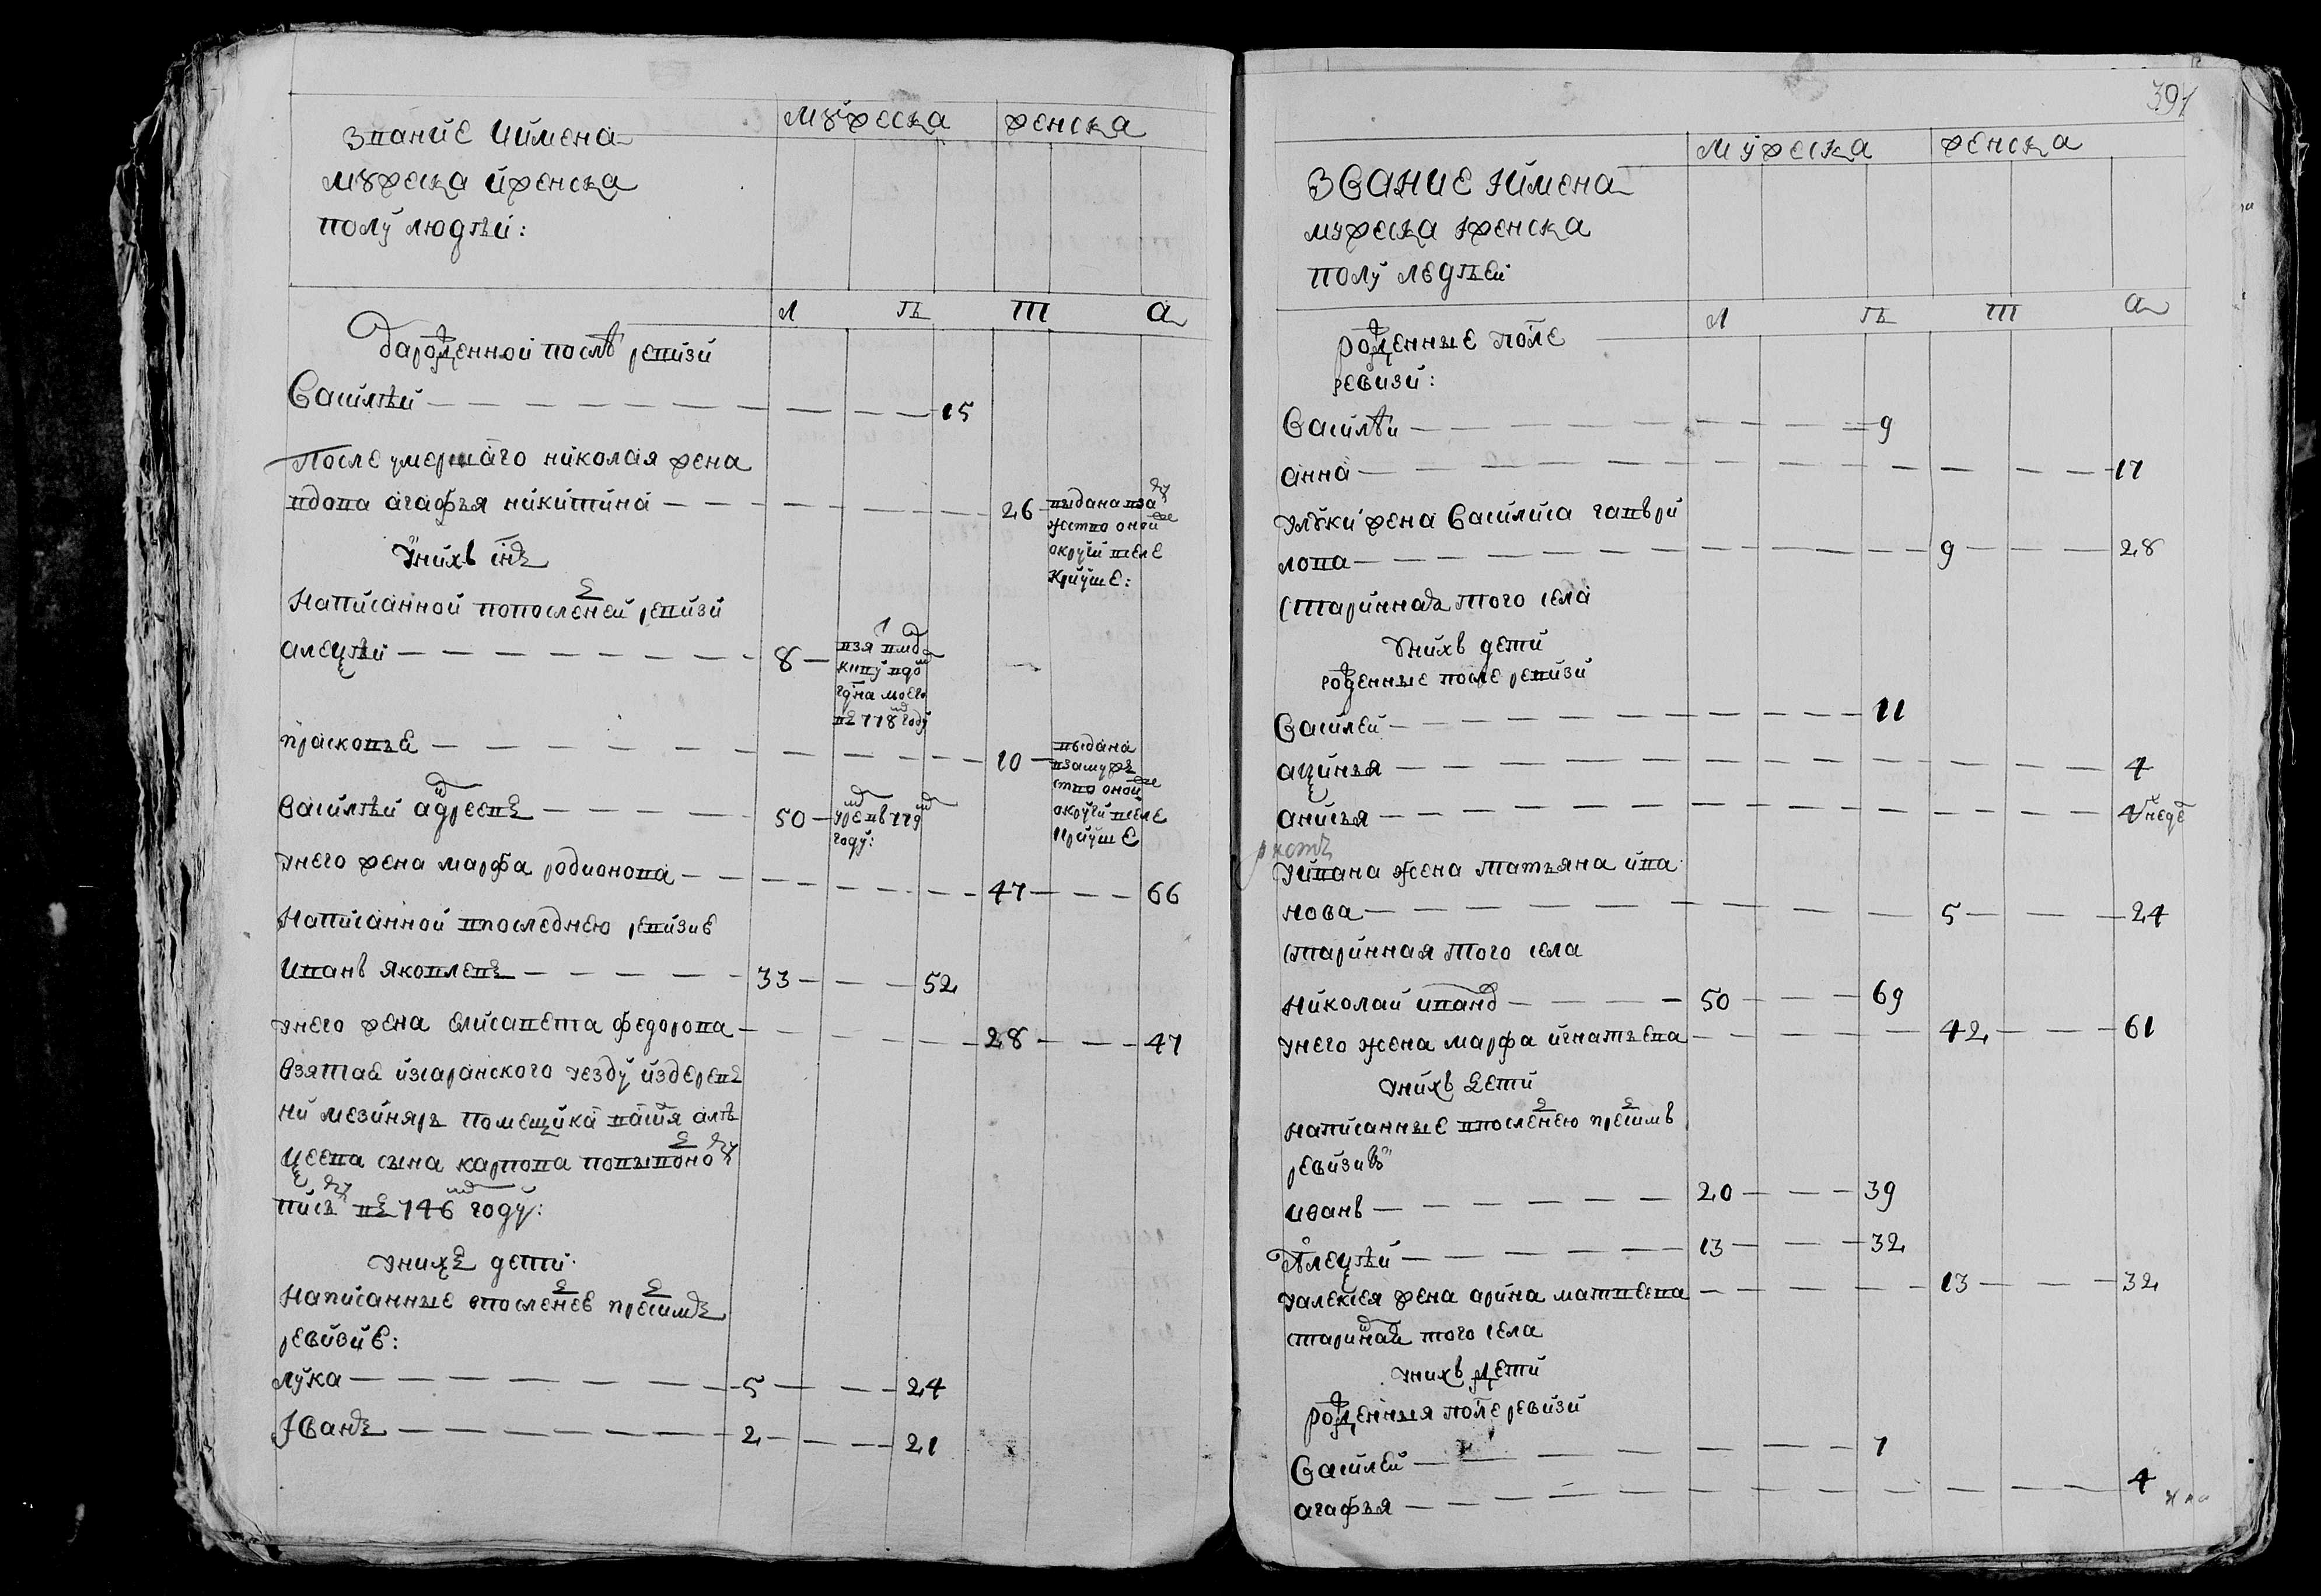 звание и имена
мужеска и женска
полу людѣй:
мужеска женска
л ѣ т а
да рожденной послѣ ревизи
Василѣй — 15
После умершаго николая жена
вдова агафья никитина — 26
выдана вза
жство оной же
округи в селе
криуше:
у них дети
Написанной по последней ревизи
алеѯѣй — 8
взят в
году
праскевья — 10
выдана
взамуже
ство оной же
округи в селе
криуше
Василѣй андреевъ — 50
умре в 779м
году:
у него жена марфа родионова — 47 — 66
Написанной в последнею ревизие
Иванъ яковлевъ — 33 — 52
у него жена елисавета федорова — 28 — 47
Взятая из саранского уезду из дерев
ни помещика васил алѣ
ѯеева сына карпова по выводному
писму в 746м году:
у нихъ дети:
Написанные в последнее пред симъ
ревизие:
лука — 5 — 24
Іванъ — 2 — 21
391
ЗВАНИЕ И имена
мужеска и женска
полу людѣй
мужеска женска
л ѣ т а
рожденные после
ревизи:
Василѣи — 9
анна — 17
у луки жена Василиса гаври
лова — 9 — 28
Старинная того села
У нихъ дети
рожденные после ревизи
Василей — 11
аѯинья — 4
анисья — 4 неде
у ивана жена татьяна ива
нова — 5 — 24
старинная того села
Николай иванов — 50 — 69
у него жена марфа игнатьева — 42 — 61
у нихъ дети
написанные в последнею пред симъ
ревизиѣ
иванъ — 20 — 39
Алеѯѣй — 13 — 32
у алексея жена арина матвеева — 13 — 32
старинная того села
у нихъ дети
рожденныя после ревизи
Василей — 7
агафья — 4